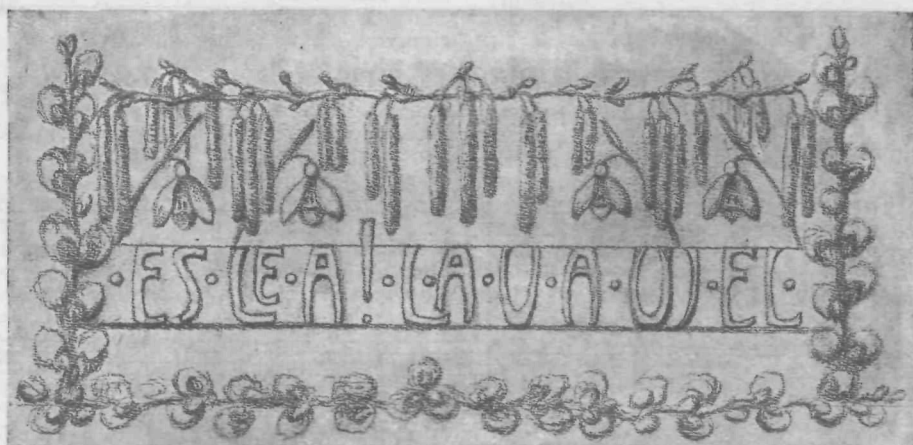 · ES · LE · A! · LA · U · A · UJ · EL ·